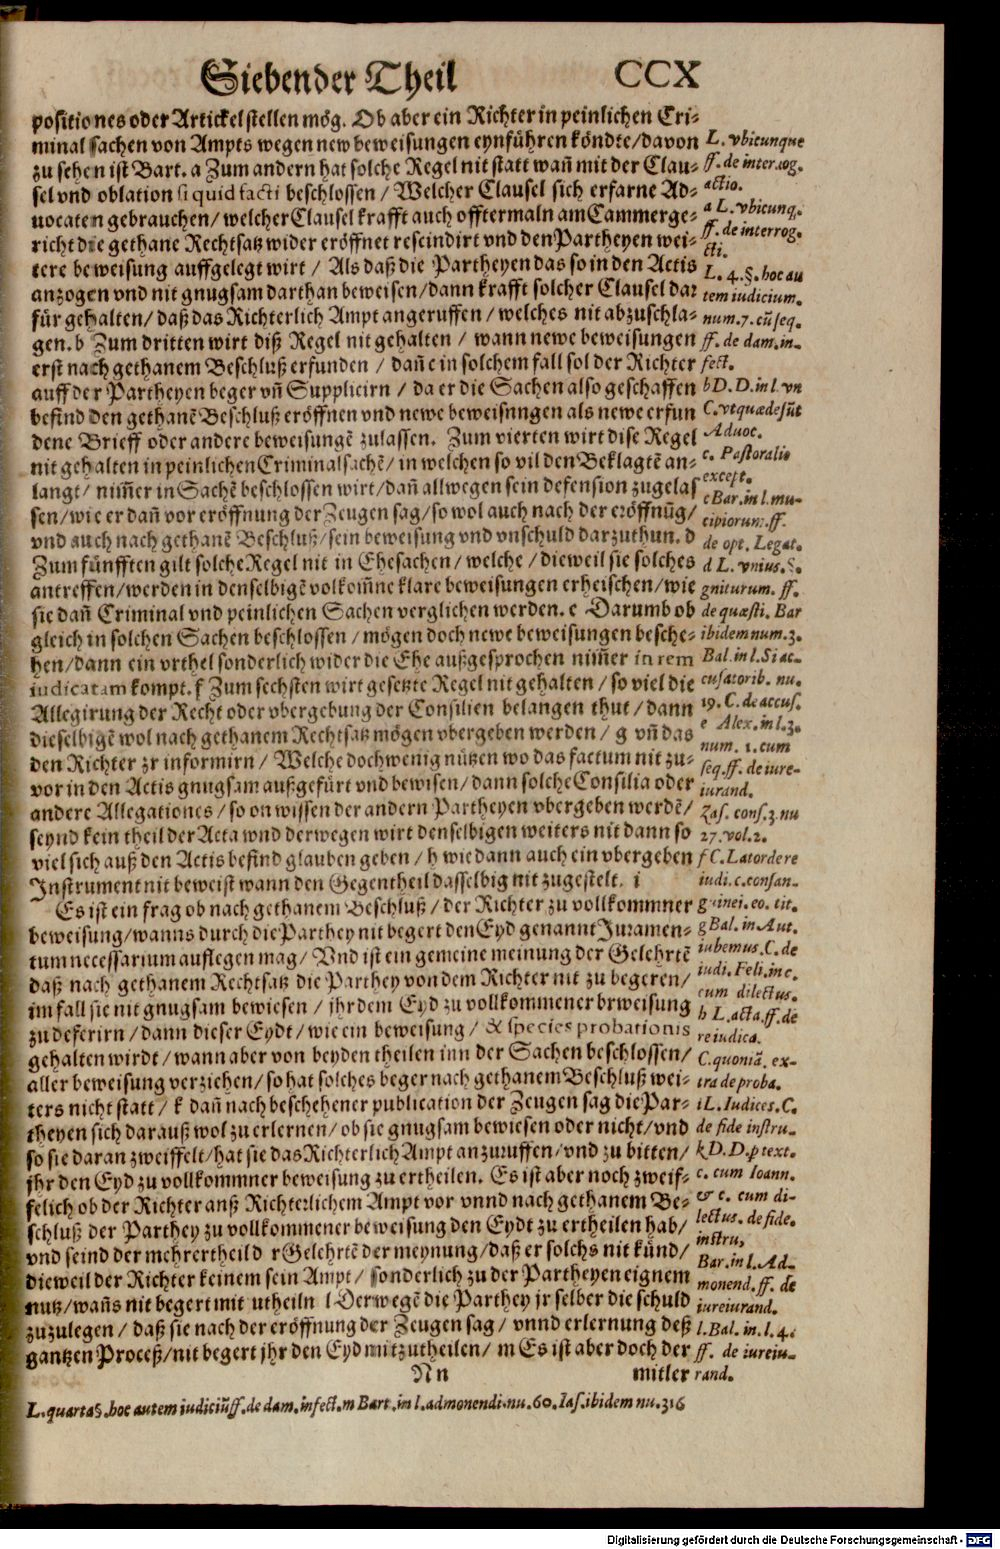 Siebender Theil CCX
positiones oder Artickel stellen mög. Ob aber ein Richter in peinlichen Cri-
minal sachen von Ampts wegen new beweisungen eynführen köndte/davon
zu sehen ist Bart. a Zum andern hat solche Regel nit statt wañ mit der Clau-
sel vnd oblation si quid facti beschlossen / Welcher Clausel sich erfarne Ad-
uocaten gebrauchen/ welcher Clausel krafft auch offtermaln am Cammerge-
richt die gethane Rechtsatz wider eröffnet rescindirt vnd den Partheyen wei-
tere beweisung auffgelegt wirt / Als daß die Partheyen das so in den Actis
anzogen vnd nit gnugsam darthan beweisen/dann krafft solcher Clausel dar
für gehalten/ daß das Richterlich Ampt angeruffen/ welches nit abzuschla-
gen. b Zum dritten wirt diß Regel nit gehalten / wann newe beweisungen
erst nach gethanem Beschluß erfunden / dañ ein solchem fall sol der Richter
auff der Partheyen beger vñ Supplicirn / da er die Sachen also geschaffen
befind den gethanẽ Beschluß eröffnen vnd newe beweisnngen als newe erfun
dene Brieff oder andere beweisungẽ zulassen. Zum vierten wirt dise Regel
nit gehalten in peinlichen Criminalsachẽ/ in welchen so vil den Beklagtẽ an-
langt/ nim̃er in Sachẽ beschlossen wirt/dañ allwegen sein defension zugelas
sen/wie er dañ vor eröffnung der Zeugen sag/so wol auch nach der eröffnũg/
vnd auch nach gethanẽ Beschluß/sein beweisung vnd vnschuld darzuthun. d
Zum fünfften gilt solche Regel nit in Ehesachen/ welche / dieweil sie solches
antreffen/werden in denselbigẽ volkom̃ne klare beweisungen erheischen/wie
sie dañ Criminal vnd peinlichen Sachen verglichen werden. e Darumb ob
gleich in solchen Sachen beschlossen / mögen doch newe beweisungen besche-
hen/dann ein vrthel sonderlich wider die Ehe außgesprochen nim̃er in rem
iudicatam kompt. f Zum sechsten wirt gesetzte Regel nit gehalten / so viel die
Allegirung der Recht oder vbergebung der Consilien belangen thut / dann
dieselbigẽ wol nach gethanem Rechtsatz mögen vbergeben werden / g vñ das
den Richter zr informirn / Welche doch wenig nützen wo das factum nit zu-
vor in den Actis gnugsam außgefürt vnd bewisen/ dann solche Consilia oder
andere Allegationes / so on wissen der andern Partheyen vbergeben werdẽ/
seynd kein theil der Acta wnd derwegen wirt denselbigen weiters nit dann so
viel sich auß den Actis befind glauben geben / h wie dann auch ein vbergeben
Instrument nit beweist wann den Gegentheil dasselbig nit zugestelt. i
Es ist ein frag ob nach gethanem Beschluß / der Richter zu vollkommner
beweisung/wanns durch die Parthey nit begert den Eyd genannt Juramen-
tum necessarium auflegen mag/ Vnd ist ein gemeine meinung der Gelehrtẽ
daß nach gethanem Rechtsatz die Parthey von dem Richter nit zu begeren/
im fall sie nit gnugsam bewiesen / jhr dem Eyd zu vollkommener brweisung
zu deferirn / dann dieser Eydt / wie ein beweisung / & species probationis
gehalten wirdt / wann aber von beyden theilen inn der Sachen beschlossen/
aller beweisung verziehen/ so hat solches beger nach gethanem Beschluß wei-
ters nicht statt / k dañ nach beschehener publication der Zeugen sag die Par-
theyen sich darauß wol zu erlernen/ ob sie gnugsam bewiesen oder nicht/vnd
so sie daran zweiffelt/hat sie das Richterlich Ampt anzuruffen/vnd zu bitten/
jhr den Eyd zu vollkommner beweisung zu ertheilen. Es ist aber noch zweif-
felich ob der Richter anß Richterlichem Ampt vor vnnd nach gethanem Be-
schluß der Parthey zu vollkommener beweisung den Eydt zu ertheilen hab/
vnd seind der mehrertheil d r Gelehrtẽ der meynung/daß er solchs nit künd/
dieweil der Richter keinem sein Ampt / sonderlich zu der Partheyen eignem
nutz/wañs nit begert mit utheiln l Derwegẽ die Parthey jr selber die schuld
zuzulegen / daß sie nach der eröffnung der Zeugen sag / vnnd erlernung deß
gantzen Proceß/nit begert jhr den Eyd mitzutheilen/ m Es ist aber doch der
Nn mitler
L. vbicunque
ff. de interrog.
actio.
a L. vbicunq.
ff. de interrog.
cti.
L. 4. §. hoc au
tem iudicium.
num. 7. cũ seq.
ff. de dam. in-
fect.
b D. D. in l. vn
C. vt quæ desũt
Aduoc.
c. Pastoralis
except.
c Bar. in l. mu-
cipiorum. ff.
de opt. Legat.
d L. vnius. §.
gniturum. ff.
de quæsti. Bar
ibidem num. 3.
Bal. in l. Si ac-
cusatorib. nu.
19. C. de accus.
e Alex. in l. 3.
num. 1. cum
seq. ff. de iure-
iurand.
Zas. cons. 3. nu
27. vol. 2.
f C. Lator de re
iudi. c. consan-
guinei. eo. tit.
g Bal. in Aut.
iubemus. C. de
iudi. Feli. in c.
cum dilectus.
h L. acta. ff. de
re iudica.
C. quoniã. ex-
tra de proba.
i L. Iudices. C.
de fide instru-
k D. D. p text.
c. cum Ioann.
& c. cum di-
lectus. de fide.
instru,
Bar. in l. Ad-
monend. ff. de
iureiurand.
l. Bal. in. l. 4.
ff. de iureiu-
rand.
L. quarta §. hoc autem iudiciũ ff. de dam. infect. m Bart. in l. admonendi. nu. 60. Ias. ibidem nu. 316
Digitalisierung gefördert durch die Deutsche Forschungsgemeinschaft - DFG